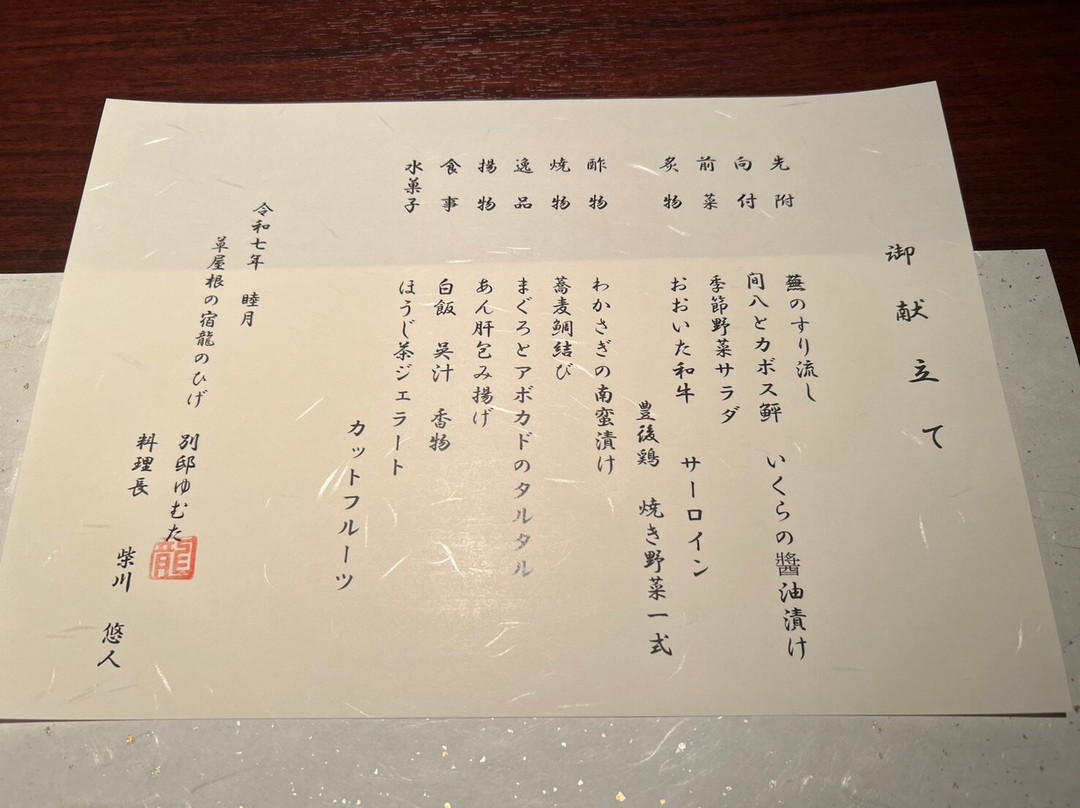 御献立て
先附 蕪のすり流し
向付 間八とカボス鮃 いくらの醬油漬け
前菜 季節野菜サラダ
炙物 おおいた和牛 サーロイン
豊後鶏 焼き野菜一式
酢物 わかさぎの南蛮漬け
焼物 蕎麦鯛結び
逸品 まぐろとアボカドのタルタル
揚物 あん肝包み揚げ
食事 白飯 呉汁 香物
水菓子 ほうじ茶ジェラート
カットフルーツ
令和七年 睦月
草屋根の宿龍のひげ
別邸ゆむた
料理長 柴川 悠人
龍